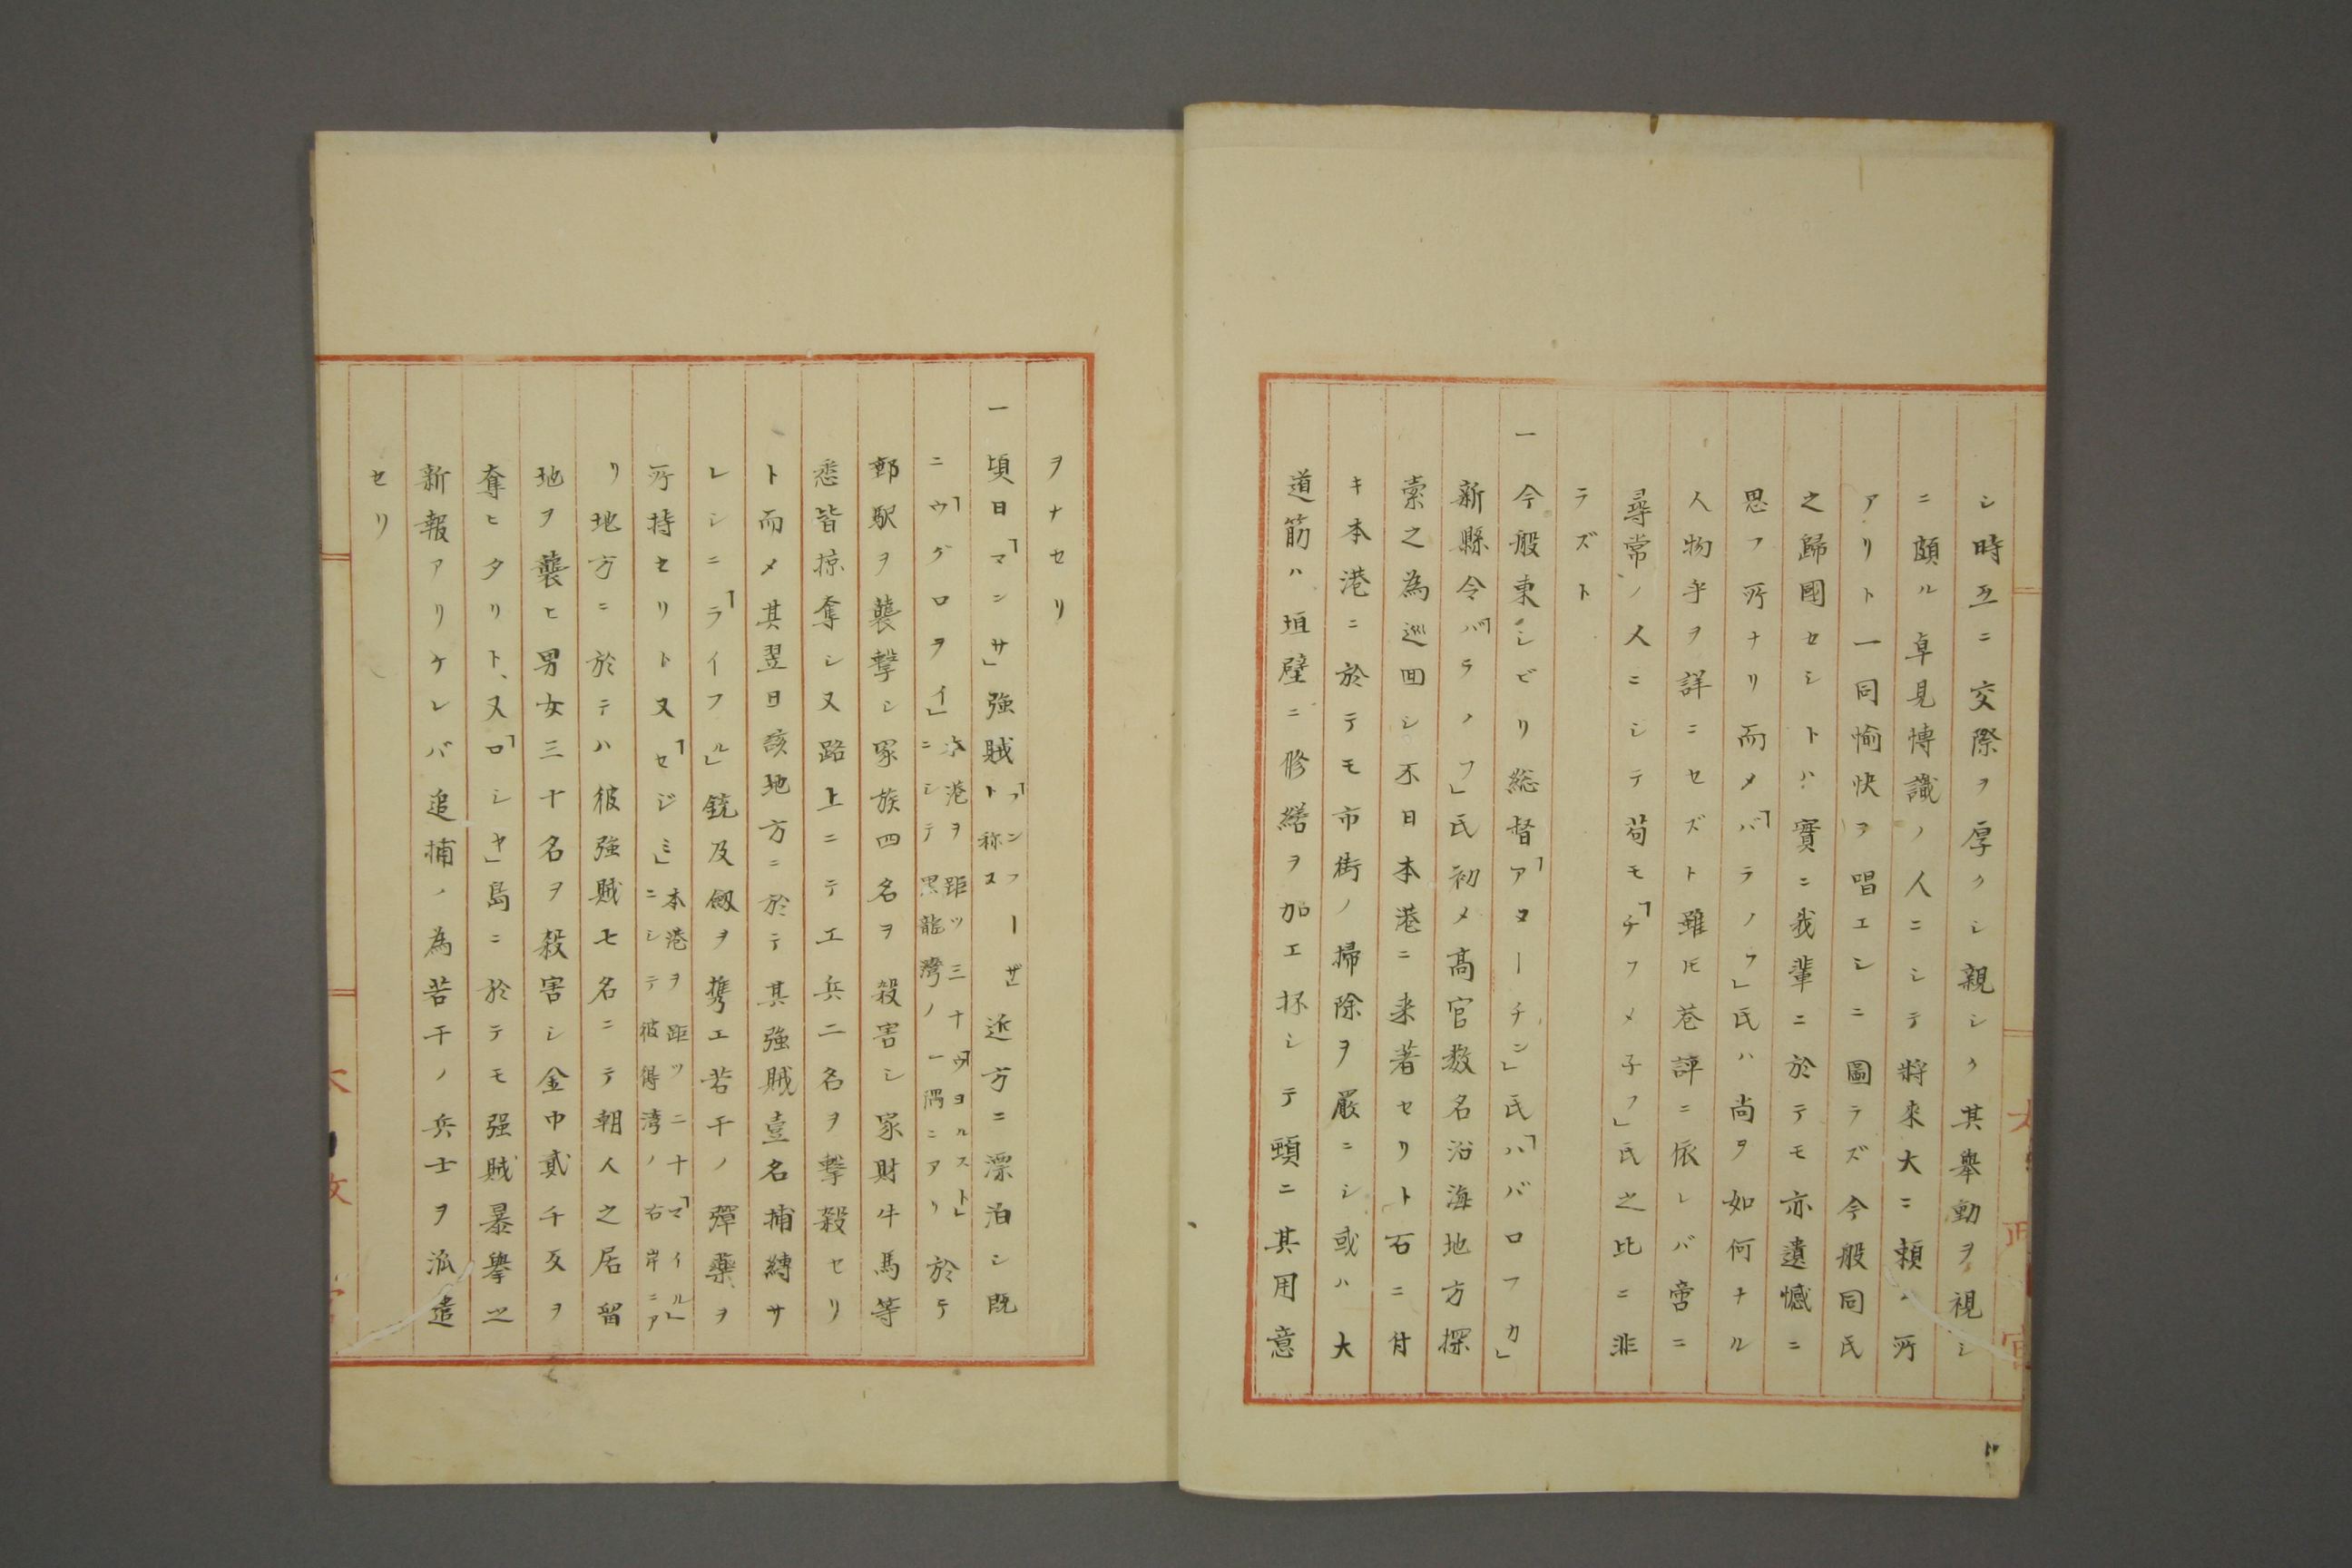 シ時互ニ交際ヲ厚クシ親シク其擧動ヲ視シ
ニ頗ル卓見博識ノ人ニシテ將來大ニ頼ム所
アリト一同愉快ヲ唱エシニ圖ラズ今般同氏
之歸國セシトハ實ニ我輩ニ於テモ亦遺憾ニ
思フ所ナリ而メ「バラノフ」氏ハ尚ヲ如何ナル
人物乎ヲ詳ニセズト雖𪜈巷評ニ依レバ啻ニ
尋常ノ人ニシテ苟モ「チフメ子フ」氏之比ニ非
ラズト
一今般東シビリ総督「アヌーチン」氏「ハバロフカ」
新縣令「バラノフ」氏初メ高官数名沿海地方探
索之為巡回シ不日本港ニ来著セリト右ニ付
キ本港ニ於テモ市街ノ掃除ヲ嚴ニシ或ハ大
道筋ハ垣壁ニ修繕ヲ加エ抔シテ頭ニ其用意
ヲナセリ
一頃日「マンサ」強賊ト称ス「フンフーザ」近方ニ漂泊シ既
ニ「ウグロヲイ」本港ヲ距ッ三十「ウヨルスト」ニシテ黒龍灣ノ一隅ニアリ於テ
郵駅ヲ襲撃シ家族四名ヲ殺害シ家財牛馬等
悉皆掠奪シ又路上ニテ工兵二名ヲ撃殺セリ
ト而メ其翌日該地方ニ於テ其強賊壹名捕縛サ
レシニ「ライフル」銃及劔ヲ携エ若干ノ彈藥ヲ
所持セリト又「セジミ」本港ヲ距ッ二十「マイル」ニシテ彼得湾ノ右岸ニア
リ地方ニ於テハ彼強賊七名ニテ朝人之居留
地ヲ襲ヒ男女三十名ヲ殺害シ金巾貳千反ヲ
奪ヒタリト、又「ロシヤ」島ニ於テモ强賊暴擧之
新報アリケレバ追捕ノ為若干ノ兵士ヲ派遣
セリ